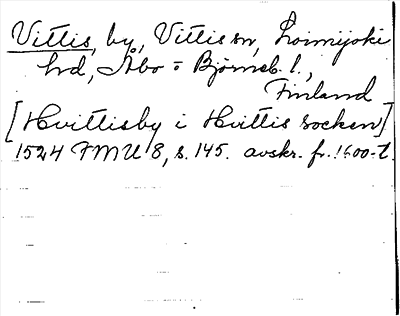 Vittis, by, Vittis sn, Loimijoki
hd, Åbo = Björneb. l.,
Finland
[Hvittisby i Hvittis socken]
1524 FMU 8, s. 145. avskr. fr. 1600-t.